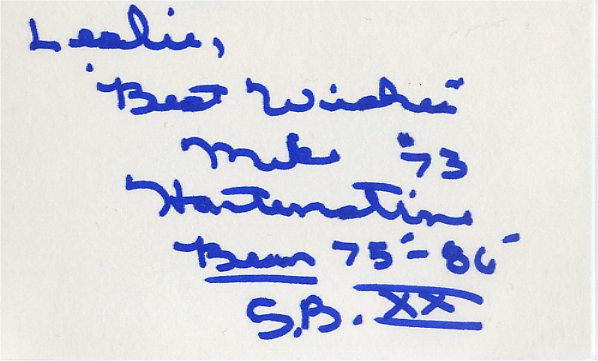 Leslie,
"Best Wishes"
Mike "73
Hartenstine
Bears 75'-86'
S.B. XX